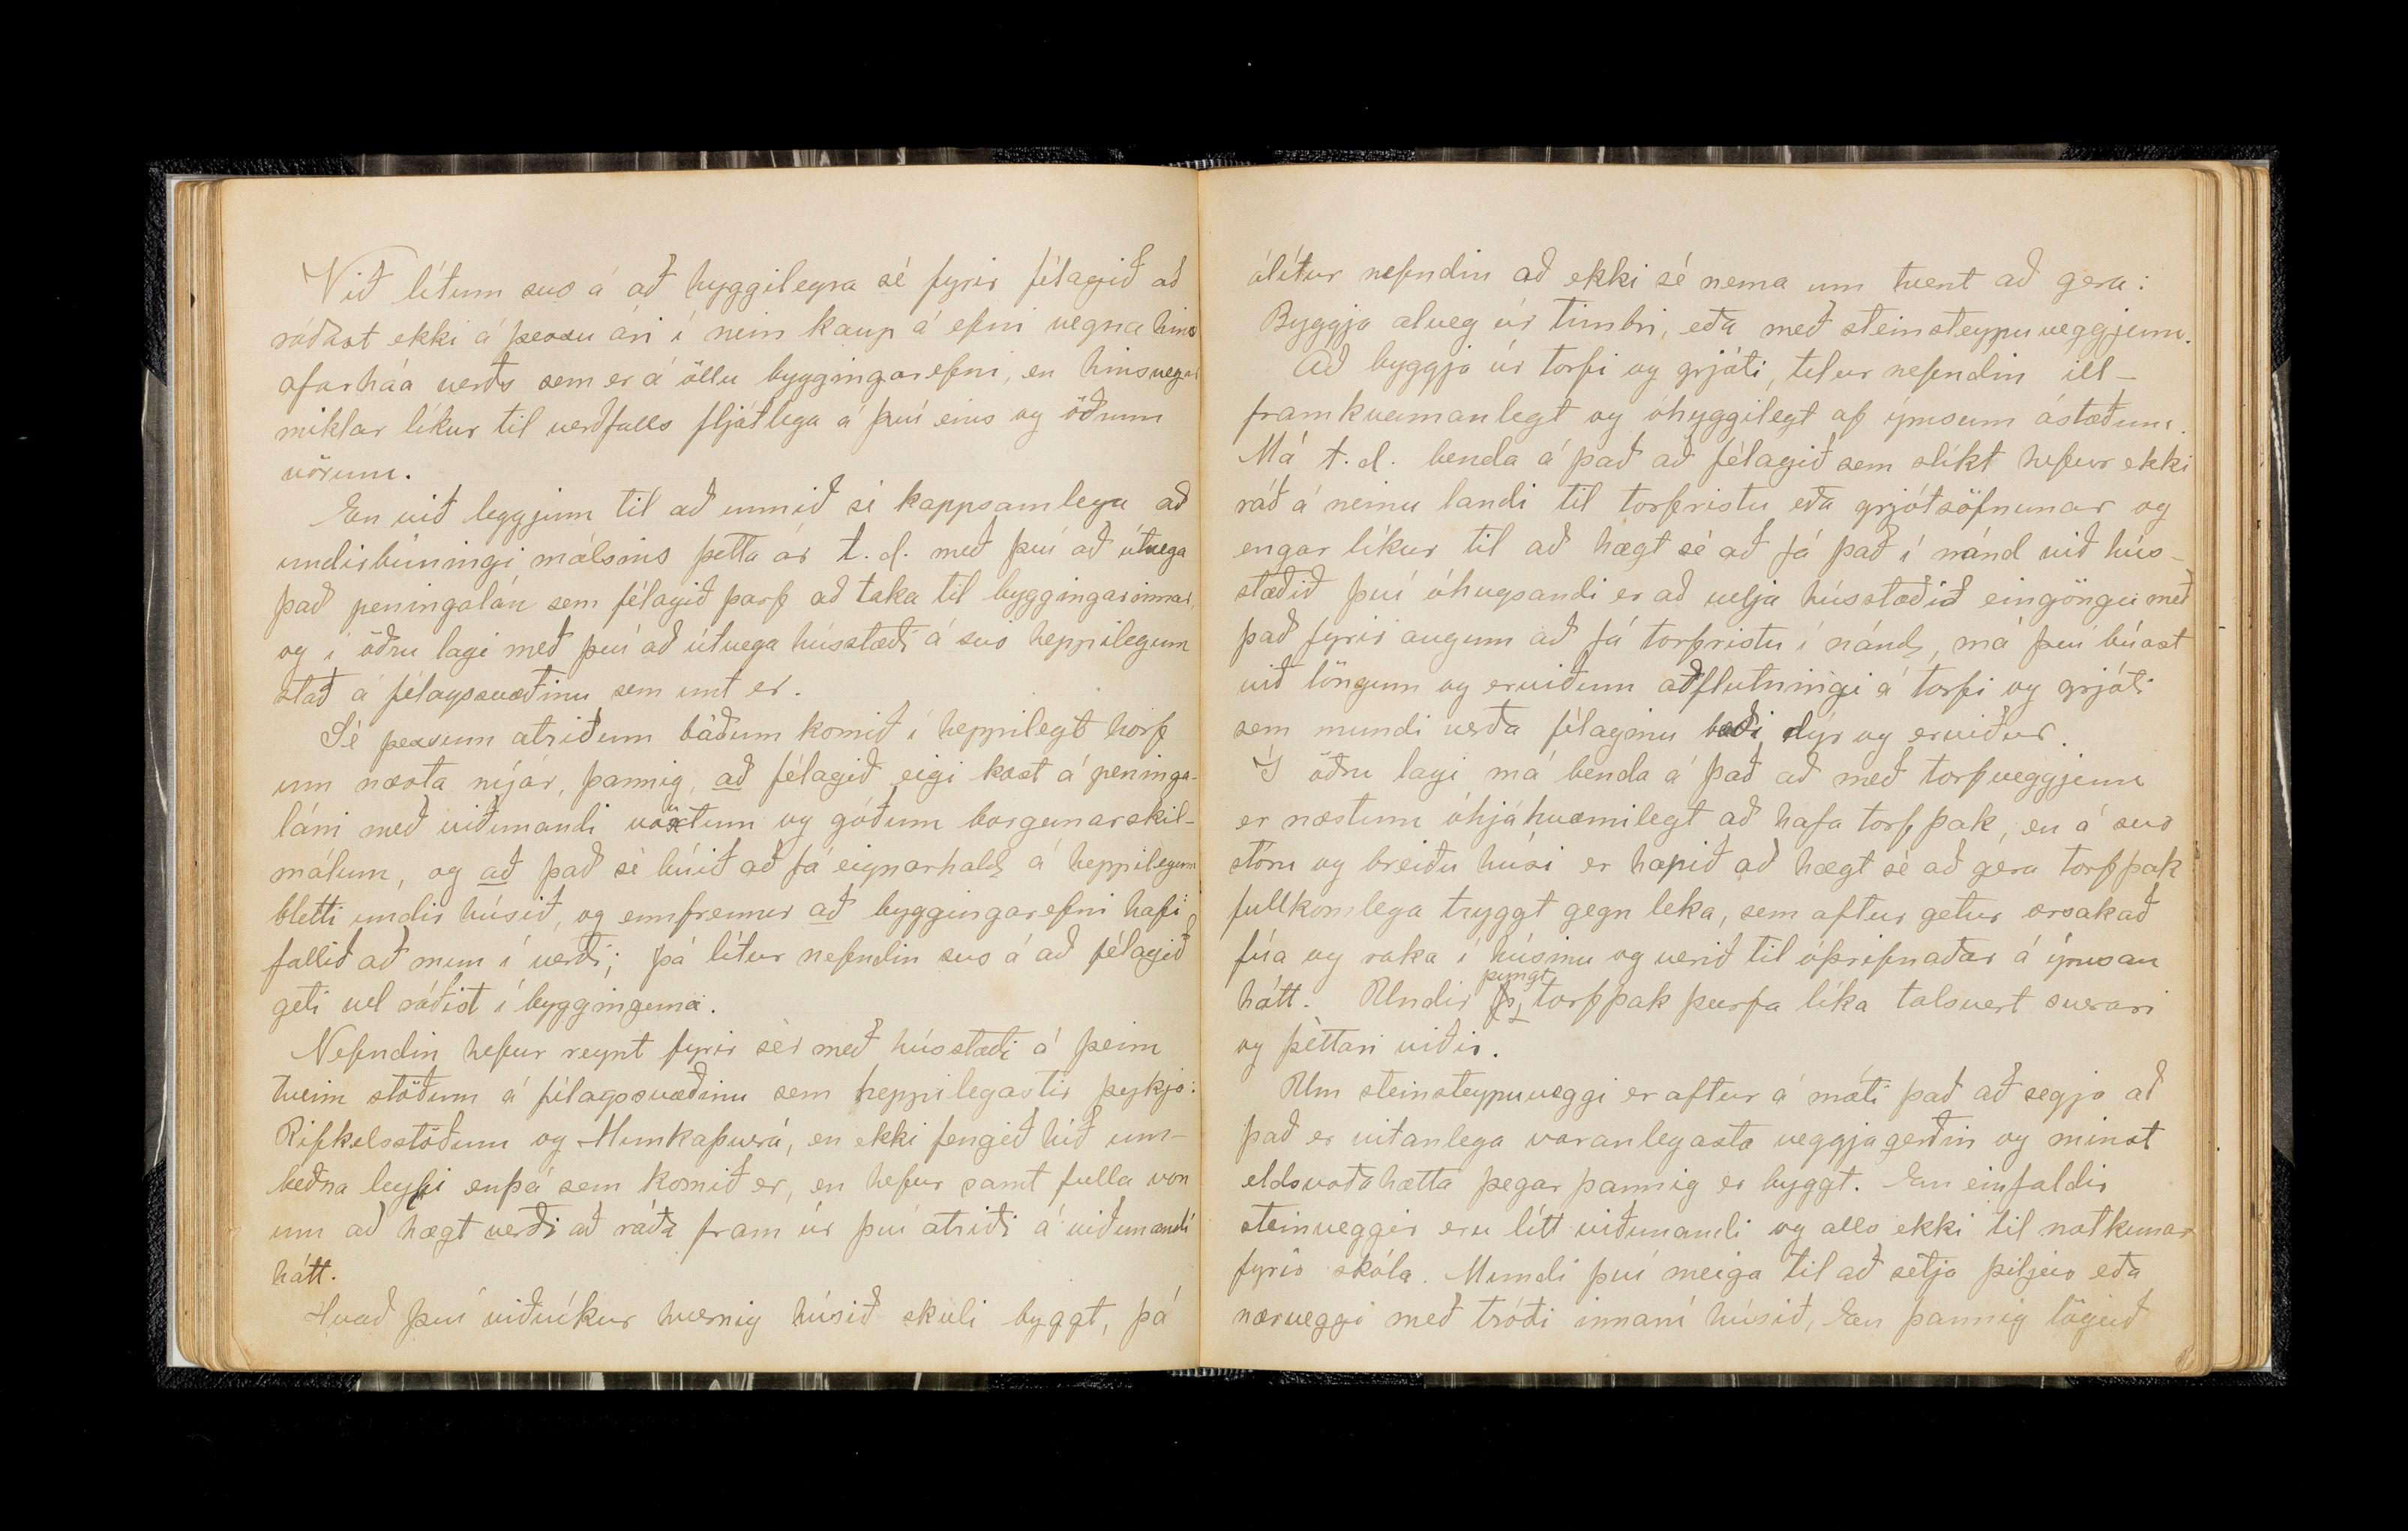 Við lítum svo á að hyggilegra sé fyrir félagið að
ráðast ekki á þessu ári í nein kaup á efni vegna hins
afarháa verðs sem er á öllu byggingarefni, en hinsvegar
miklar líkur til verðfalls fljótlega á því eins og öðrum
vörum.
En við leggjum til að unnið sé kappsamlega að
undirbúningi málsins þetta ár t.d. með því að útvega
það peningalán sem félagið þarf að taka til byggingarinnar,
og í öðru lagi með því að útvega hússtæði á svo heppilegum
stað á félagssvæðinu sem unt er.
Sé þessum atriðum báðum komið í heppilegt horf
um næsta nýjár, þannig, að félagið eigi kost á peninga-
láni með viðunandi vöxtum og góðum borgunarskil-
málum, og að það sé búið að fá eignarhald á heppilegum
bletti undir húsið, og ennfremur að byggingarefni hafi
fallið að mun í verði; þá lítur nefndin svo á að félagið
geti vel ráðist í bygginguna.
Nefndin hefur reynt fyrir sér með hússtæði á þeim
tveim stöðum á félagssvæðinu sem heppilegastir þykja:
Rifkelsstöðum og Munkaþverá, en ekki fengið hið um-
beðna leyfi enþá sem komið er, en hefur samt fulla von
um að hægt verði að ráða fram úr því atriði á viðunandi
hátt.
Hvað því viðvíkur hvernig húsið skuli byggt, þá
álítur nefndin að ekki sé nema um tvent að gera:
Byggja alveg úr timbri, eða með steinsteypuveggjum.
Að byggja úr torfi og grjóti, telur nefndin ill-
framkvæmanlegt og óhyggilegt af ýmsum ástæðum.
Má t.d. benda á það að félagið sem slíkt hefur ekki
ráð á neinu landi til torfristu eða grjótsöfnunar og
engar líkur til að hægt sé að fá það í nánd við hús-
stæðið því óhugsandi er að velja hússtæðið eingöngu með
það fyrir augum að fá torfristu í nánd, má því búast
við löngum og erviðum aðflutningi á torfi og grjóti
sem mundi verða félaginu bæði dýr og erviður.
Í öðru lagi má benda á það að með torfveggjum
er næstum óhjákvæmilegt að hafa torfþak, en á svo
stóru og breiðu húsi er hæpið að hægt sé að gera torfþak
fullkomlega tryggt gegn leka, sem aftur getur orsakað
fúa og raka í húsinu og verið til óþrifnaðar á ýmsan
hátt. Undir þungt torfþak þurfa líka talsvert sverari
og þéttari viðir.
Um steinsteypuveggi er aftur á móti það að segja að
það er vitanlega varanlegasta veggjagerðin og minst
eldsvoðahætta þegar þannig er byggt. En einfaldir
steinveggir eru lítt viðunandi og alls ekki til notkunar
fyrir skóla. Mundi því meiga til að setja þiljur eða
nærveggi með tróði innaní húsið, En þannig löguð